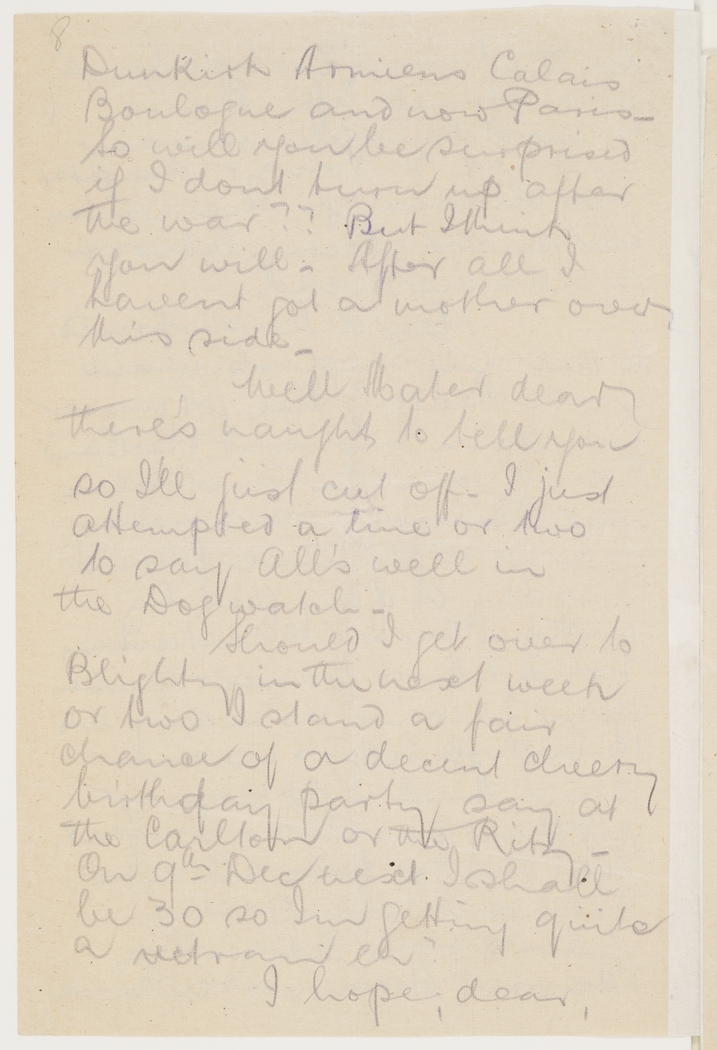 8
Dunkirk Armiens Calais
Boulogne and now Paris -
So will you be surprised
if I dont turn up after
the war?? But I think
you will - After all I
havent got a mother over
this side -
Well Mater dear
there's naught to tell you
so I'll just cut off - I just
attempted a line or two
to say All's well in
the Dog watch -
Should I get over to
Blighty in the next week
or two I stand a fair
chance of a decent cheery
birthday party, say at
the Carlton or the Ritz -
On 9th Dec next I shall
be 30 so Im getting quite
a vetran eh?
I hope, dear,